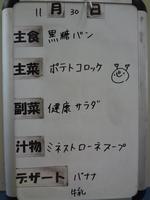 11月30日
主食 黒糖パン
主菜 ポテトコロッケ
副菜 健康サラダ
汁物 ミネストローネスープ
デザート バナナ
牛乳